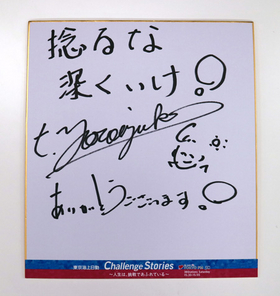 捻るな
深くいけ!
ありがとうございます!
東京海上日動 Challenge Stories
～人生は、挑戦であふれている～